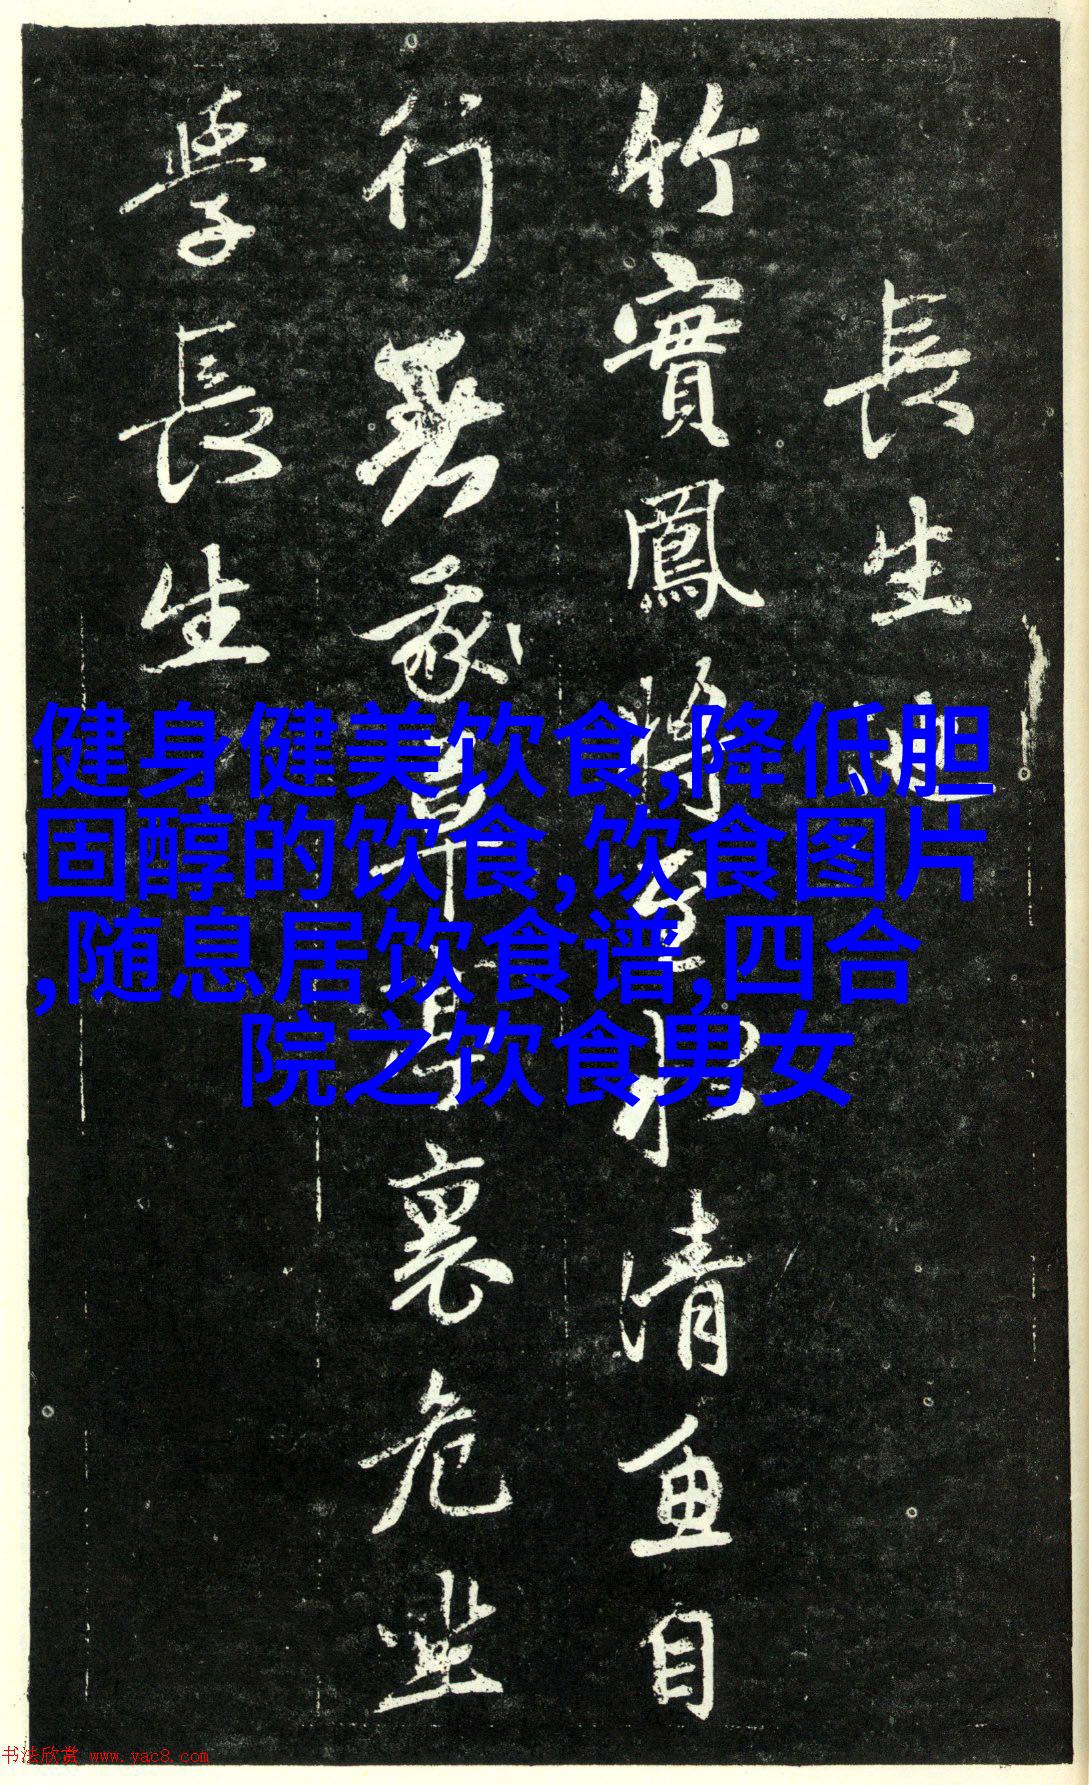 長生
竹實鳳將至水清魚自
行家裏危坐
學長生
健身健美饮食,降低胆
固醇的饮食,饮食图片
,随息居饮食谱,四合
院之饮食男女
书法欣赏 www.yac8.com